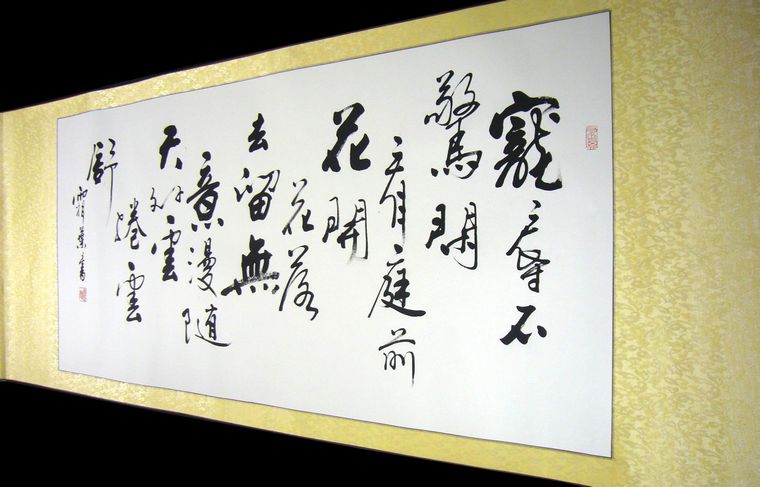 寵辱不
驚閑
看庭前
花開
花落
去留無
意漫随
天外雲
捲雲
舒
霜葉書